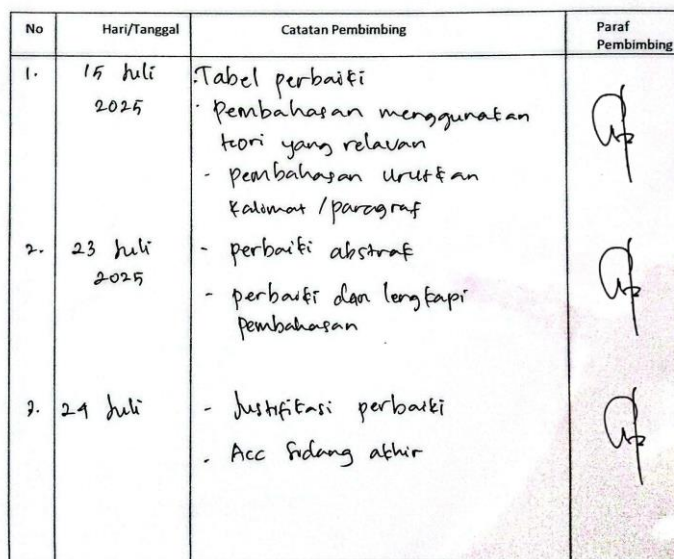 No Hari/Tanggal Catatan Pembimbing Paraf Pembimbing
1. 15 Juli 2025
. Tabel perbaiki
. pembahasan menggunakan
teori yang relavan
- pembahasan urutkan
kalimat / paragraf
2. 23 Juli 2025
- perbaiki abstrak
- perbaiki dan lengkapi
pembahasan
3. 24 Juli
- Justifikasi perbaiki
. Acc Sidang akhir